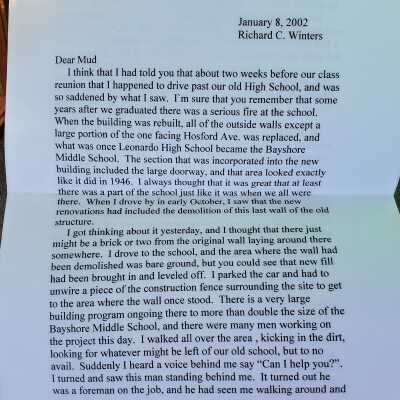 January 8, 2002
Richard C. Winters
Dear Mud
I think that I had told you that about two weeks before our class
reunion that I happened to drive past our old High School, and was
so saddened by what I saw. I'm sure that you remember that some
years after we graduated there was a serious fire at the school.
When the building was rebuilt, all of the outside walls except a
large portion of the one facing Hosford Ave. was replaced, and
what was once Leonardo High School became the Bayshore
Middle School. The section that was incorporated into the new
building included the large doorway, and that area looked exactly
like it did in 1946. I always thought that it was great that at least
there was a part of the school just like it was when we all were
there. When I drove by in early October, I saw that the new
renovations had included the demolition of this last wall of the old
structure.
I got thinking about it yesterday, and I thought that there just
might be a brick or two from the original wall laying around there
somewhere. I drove to the school, and the area where the wall had
been demolished was bare ground, but you could see that new fill
had been brought in and leveled off. I parked the car and had to
unwire a piece of the construction fence surrounding the site to get
to the area where the wall once stood. There is a very large
building program ongoing there to more than double the size of the
Bayshore Middle School, and there were many men working on
the project this day. I walked all over the area , kicking in the dirt,
looking for whatever might be left of our old school, but to no
avail. Suddenly I heard a voice behind me say "Can I help you?".
I turned and saw this man standing behind me. It turned out he
was a foreman on the job, and he had seen me walking around and